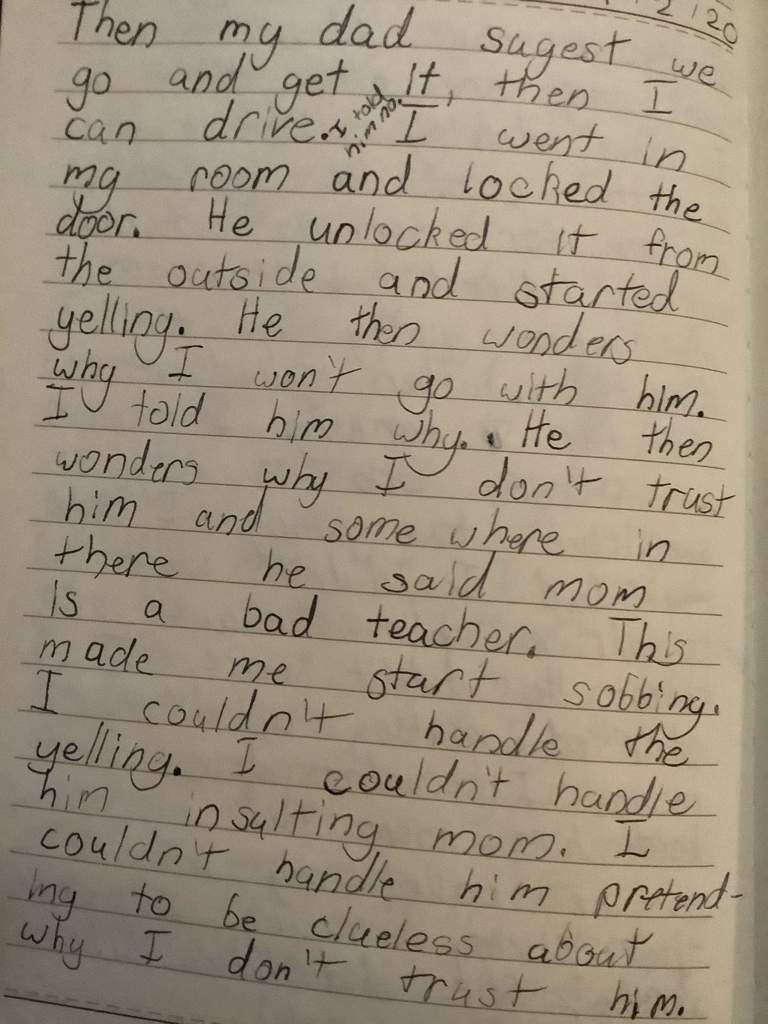 2/20
Then my dad sugest we
go and get it, then I
can drive. I told him no. I went in
my room and locked the
door. He unlocked it from
the outside and started
yelling. He then wonders
why I won't go with him.
I told him why. He then
wonders why I don't trust
him and some where in
there he said mom
is a bad teacher. This
made me start sobbing.
I couldn't handle the
yelling. I couldn't handle
him insulting mom. I
couldn't handle him pretend-
ing to be clueless about
why I don't trust him.